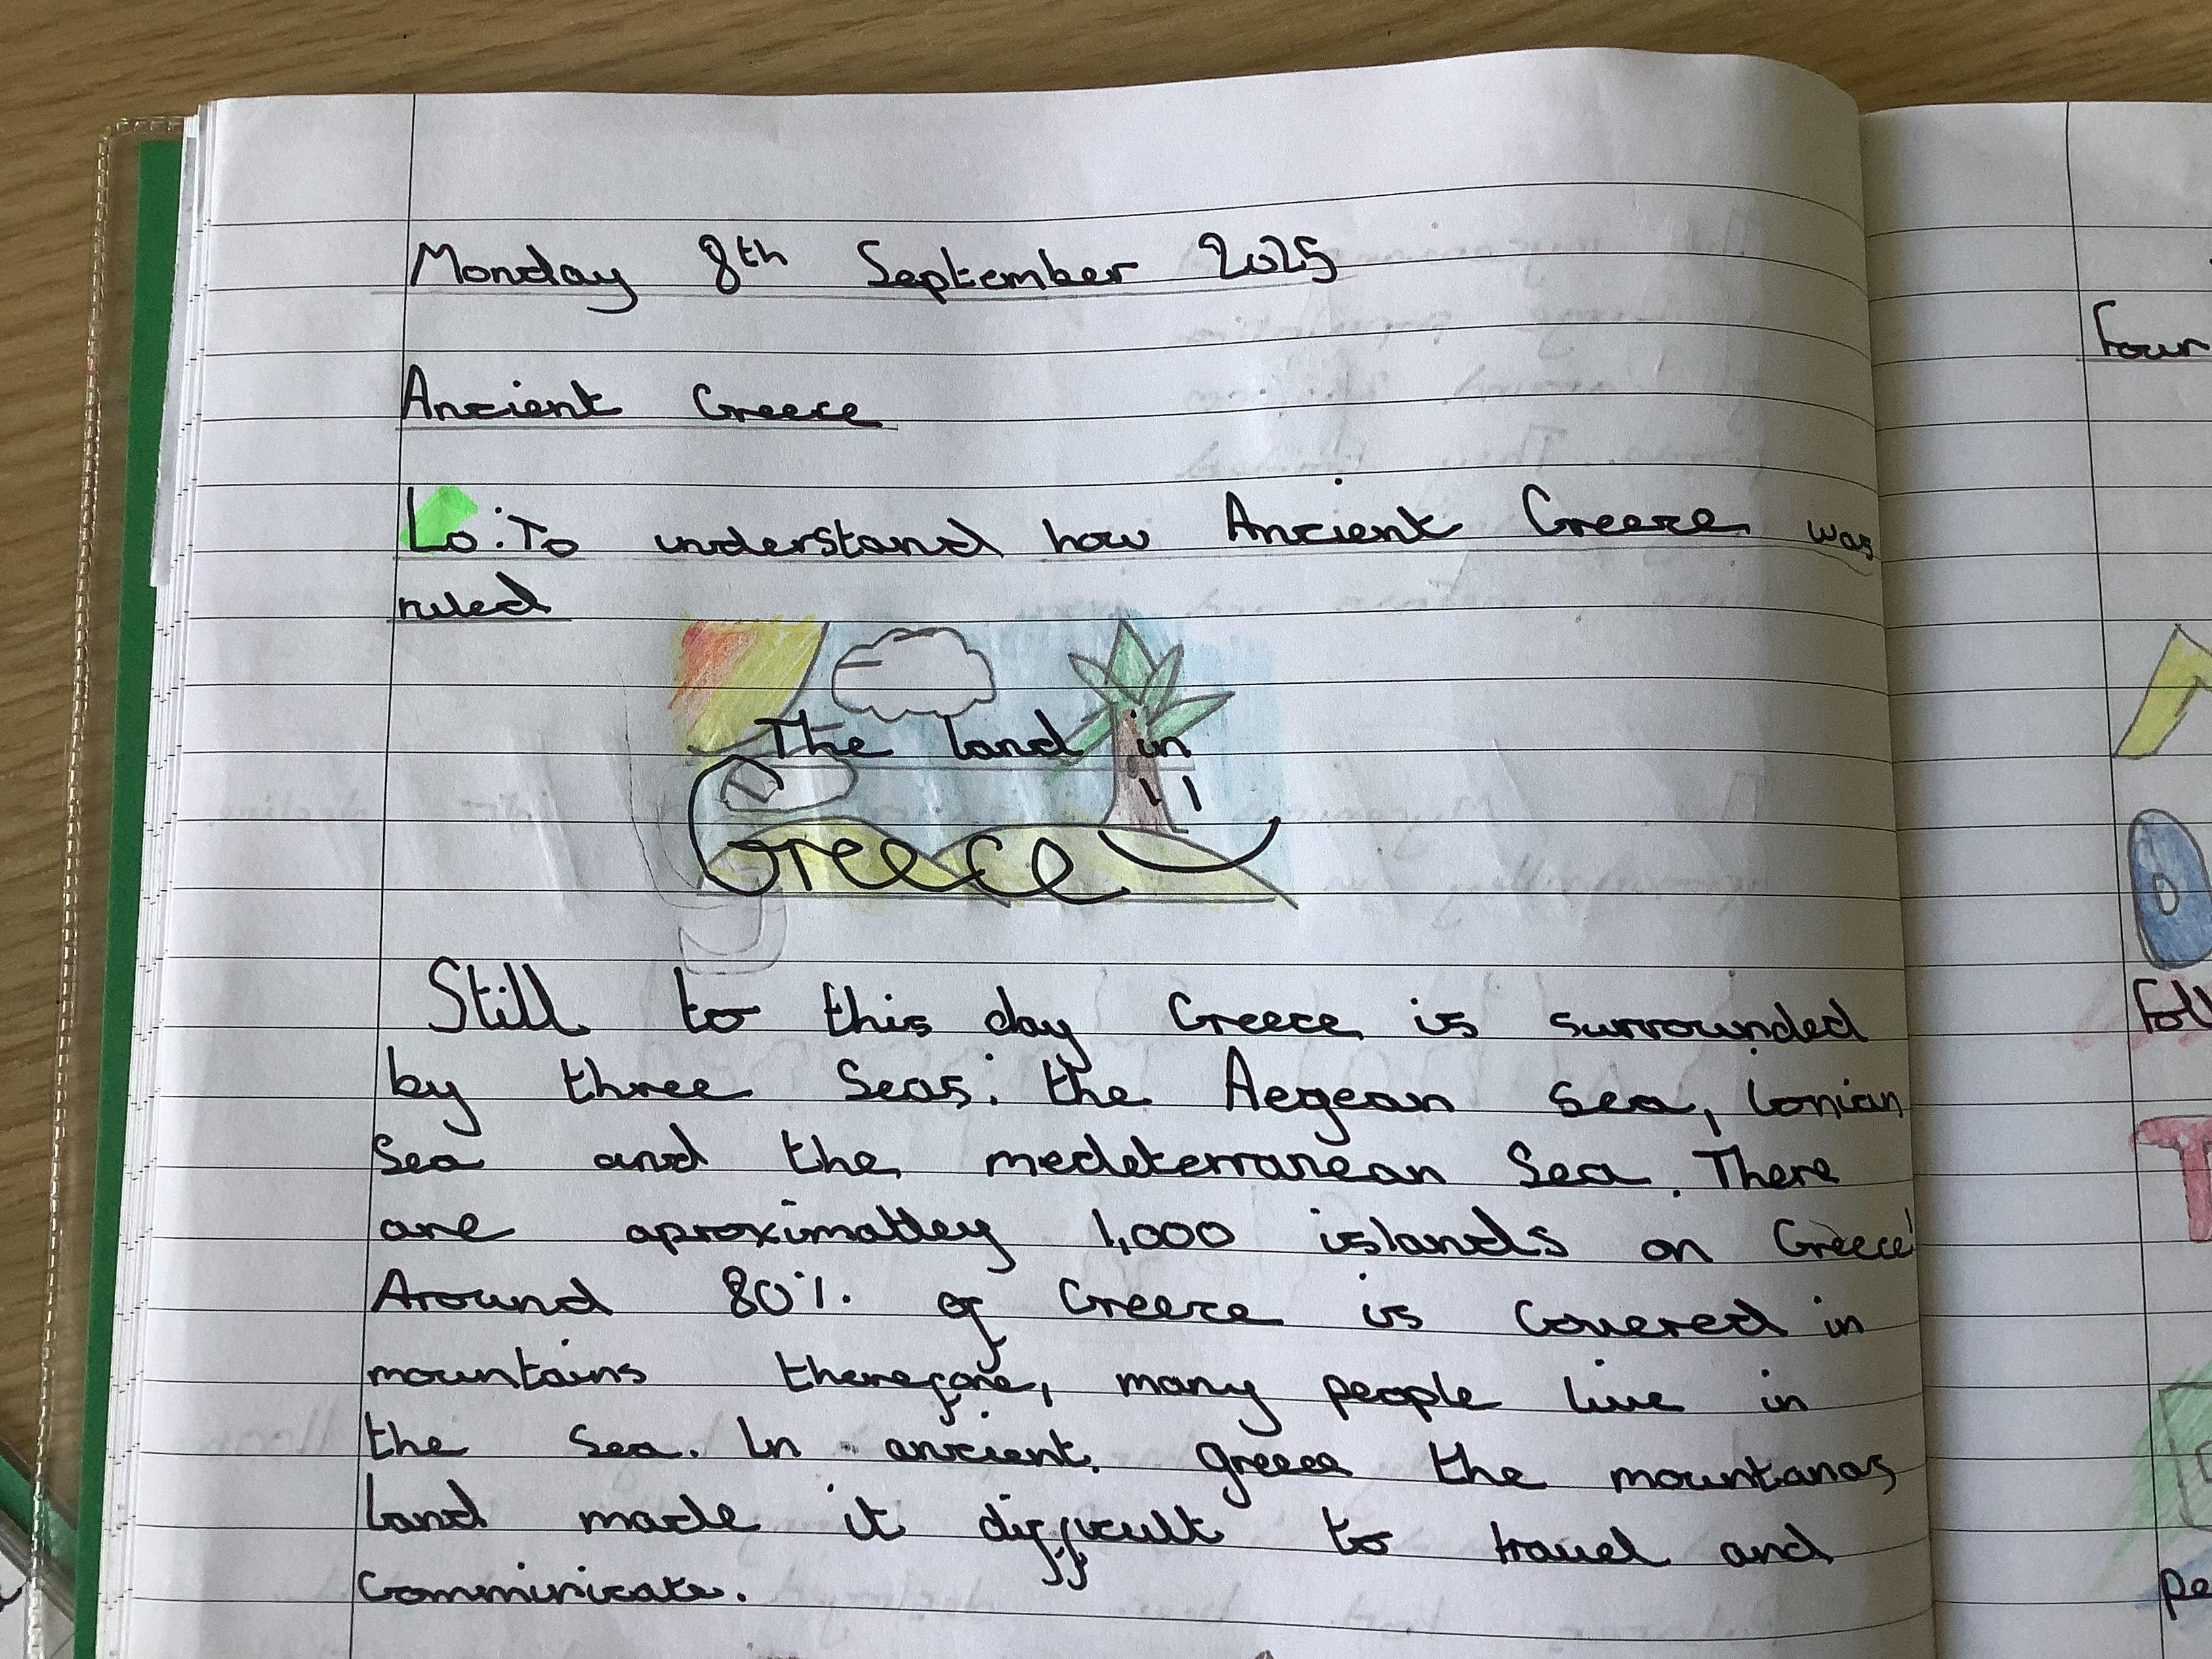 Monday 8th September 2025
Ancient Greece
Lo: To understand how Ancient Greece was
ruled
The land in
Greece
Still to this day Greece is surrounded
by three Seas: the Aegean Sea, Ionian
Sea and the medeterranean Sea. There
are aproximatley 1,000 islands on Greece!
Around 80% of Greece is Covered in
mountains therefore, many people live in
the Sea. In ancient greece the mountanos
land made it difficult to travel and
Comminicate.
Four
Fol
T
pe